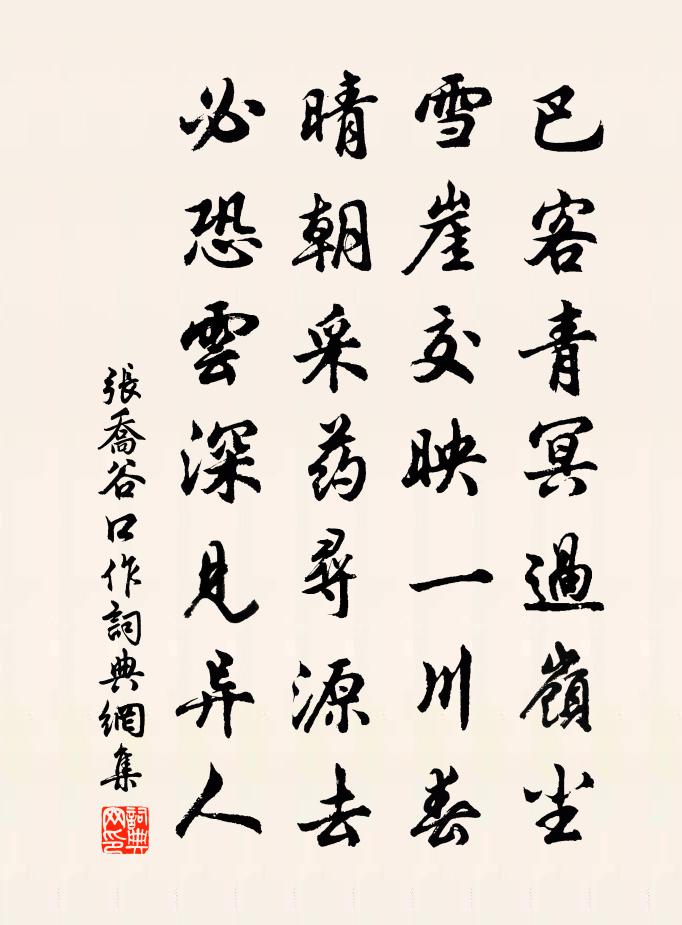 巴客青冥過嶺尘
雪崖交映一川春
晴朝采药尋源去
必恐雲深見异人
張喬谷口作詞典網集
詞典网印